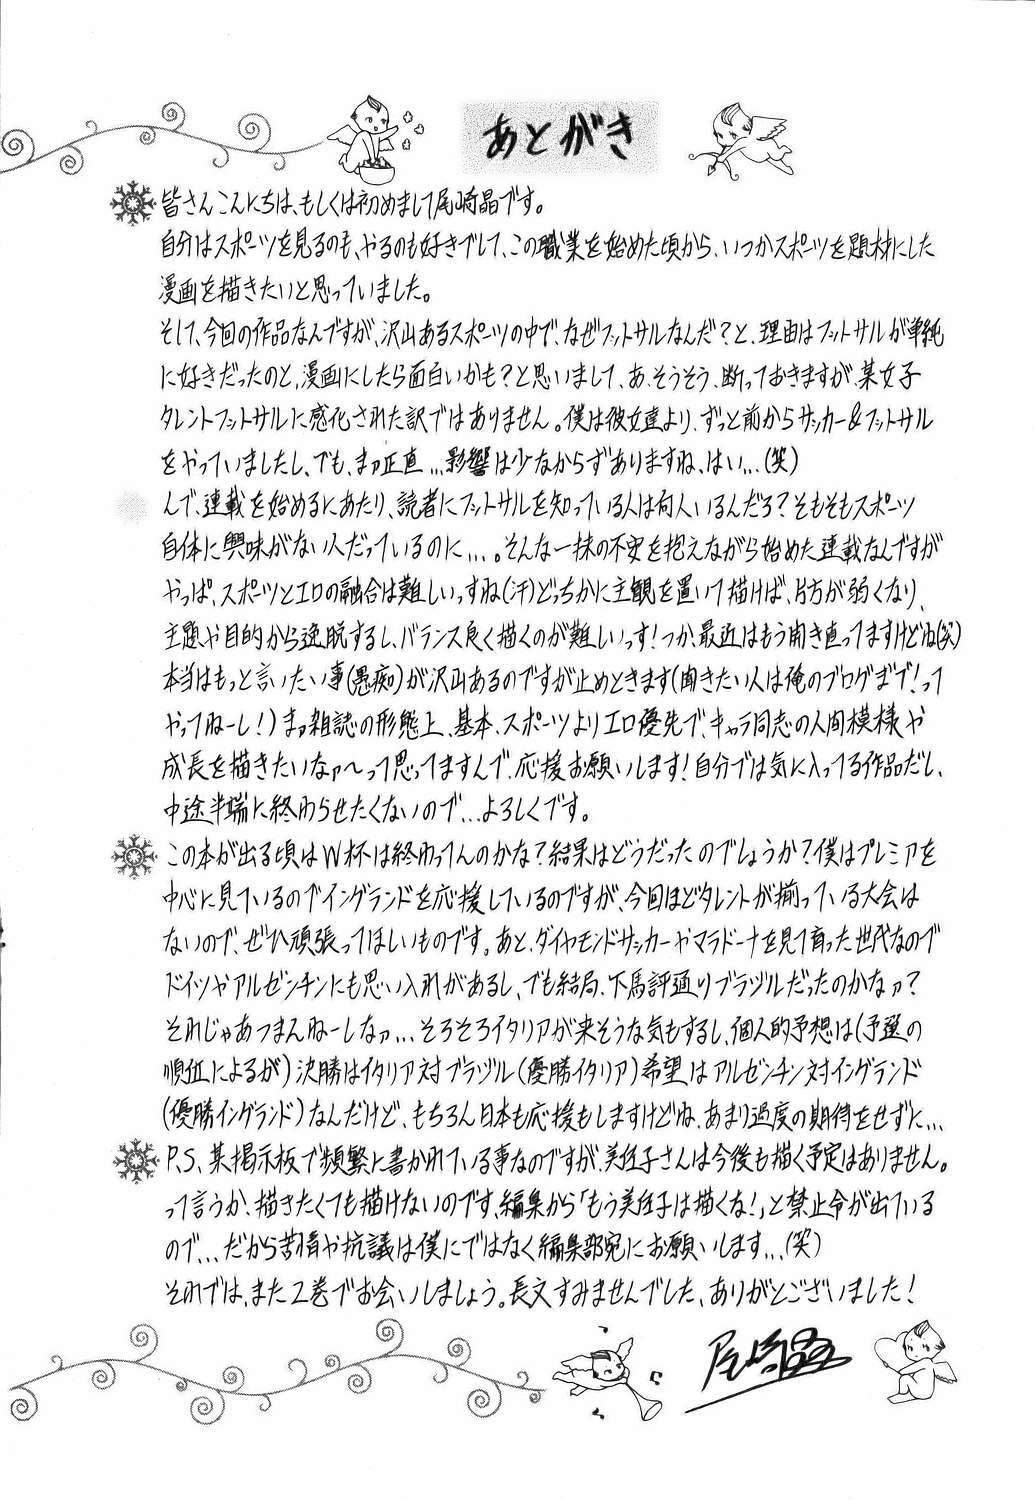 あとがき
皆さんこんにちは、もしくは初めまして尾崎晶です。
自分はスポーツを見るのも、やるのも好きでして、この職業を始めた頃から、いつかスポーツを題材にした
漫画を描きたいと思っていました。
そして、今回の作品なんですが、沢山あるスポーツの中で、なぜフットサルなんだ？と、理由はフットサルが単純
に好きだったのと、漫画にしたら面白いかも？と思いまして、あ、そうそう、断っておきますが、某女子
タレントフットサルに感化された訳ではありません。僕は彼女達より、ずっと前からサッカー&フットサル
をやっていましたし、でも、まァ正直...影響は少なからずありますね、はい...(笑)
んで、連載を始めるにあたり、読者にフットサルを知っている人は何人いるんだろ？そもそもスポーツ
自体に興味がない人だっているのに...。そんな一抹の不安を抱えながら始めた連載なんですが
やっぱ、スポーツとエロの融合は難しいっすね(汗)どっちかに主観を置いて描けば、片方が弱くなり、
主題や目的から逸脱するし、バランス良く描くのが難しいっす！つか、最近はもう開き直ってますけどね(笑)
本当はもっと言いたい事(愚痴)が沢山あるのですが止めときます(聞きたい人は俺のブログまで！って
やってねーし！)まァ雑誌の形態上、基本、スポーツよりエロ優先で、キャラ同志の人間模様や
成長を描きたいなァ〜って思ってますんで、応援お願いします！自分では気に入ってる作品だし、
中途半端に終わらせたくないので...よろしくです。
この本が出る頃はW杯は終わってんのかな？結果はどうだったのでしょうか？僕はプレミアを
中心に見ているのでイングランドを応援しているのですが、今回ほどタレントが揃っている大会は
ないので、ぜひ頑張ってほしいものです。あと、ダイヤモンドサッカーやマラドーナを見て育った世代なので
ドイツやアルゼンチンにも思い入れがあるし、でも結局、下馬評通りブラヅルだったのかなァ？
それじゃあつまんねーしなァ...そろそろイタリアが来そうな気もするし、個人的予想は(予選の
順位によるが)決勝はイタリア対ブラヅル(優勝イタリア)希望はアルゼンチン対イングランド
(優勝イングランド)なんだけど、もちろん日本も応援もしますけどね、あまり過度の期待をせずに...
P.S、某掲示板で頻繁に書かれている事なのですが、美佐子さんは今後も描く予定はありません。
って言うか、描きたくても描けないのです、編集から「もう美佐子は描くな！」と禁止令が出ている
ので...だから苦情や抗議は僕にではなく編集部宛にお願いします...(笑)
それでは、また2巻でお会いしましょう。長文すみませんでした、ありがとございました！
尾崎晶